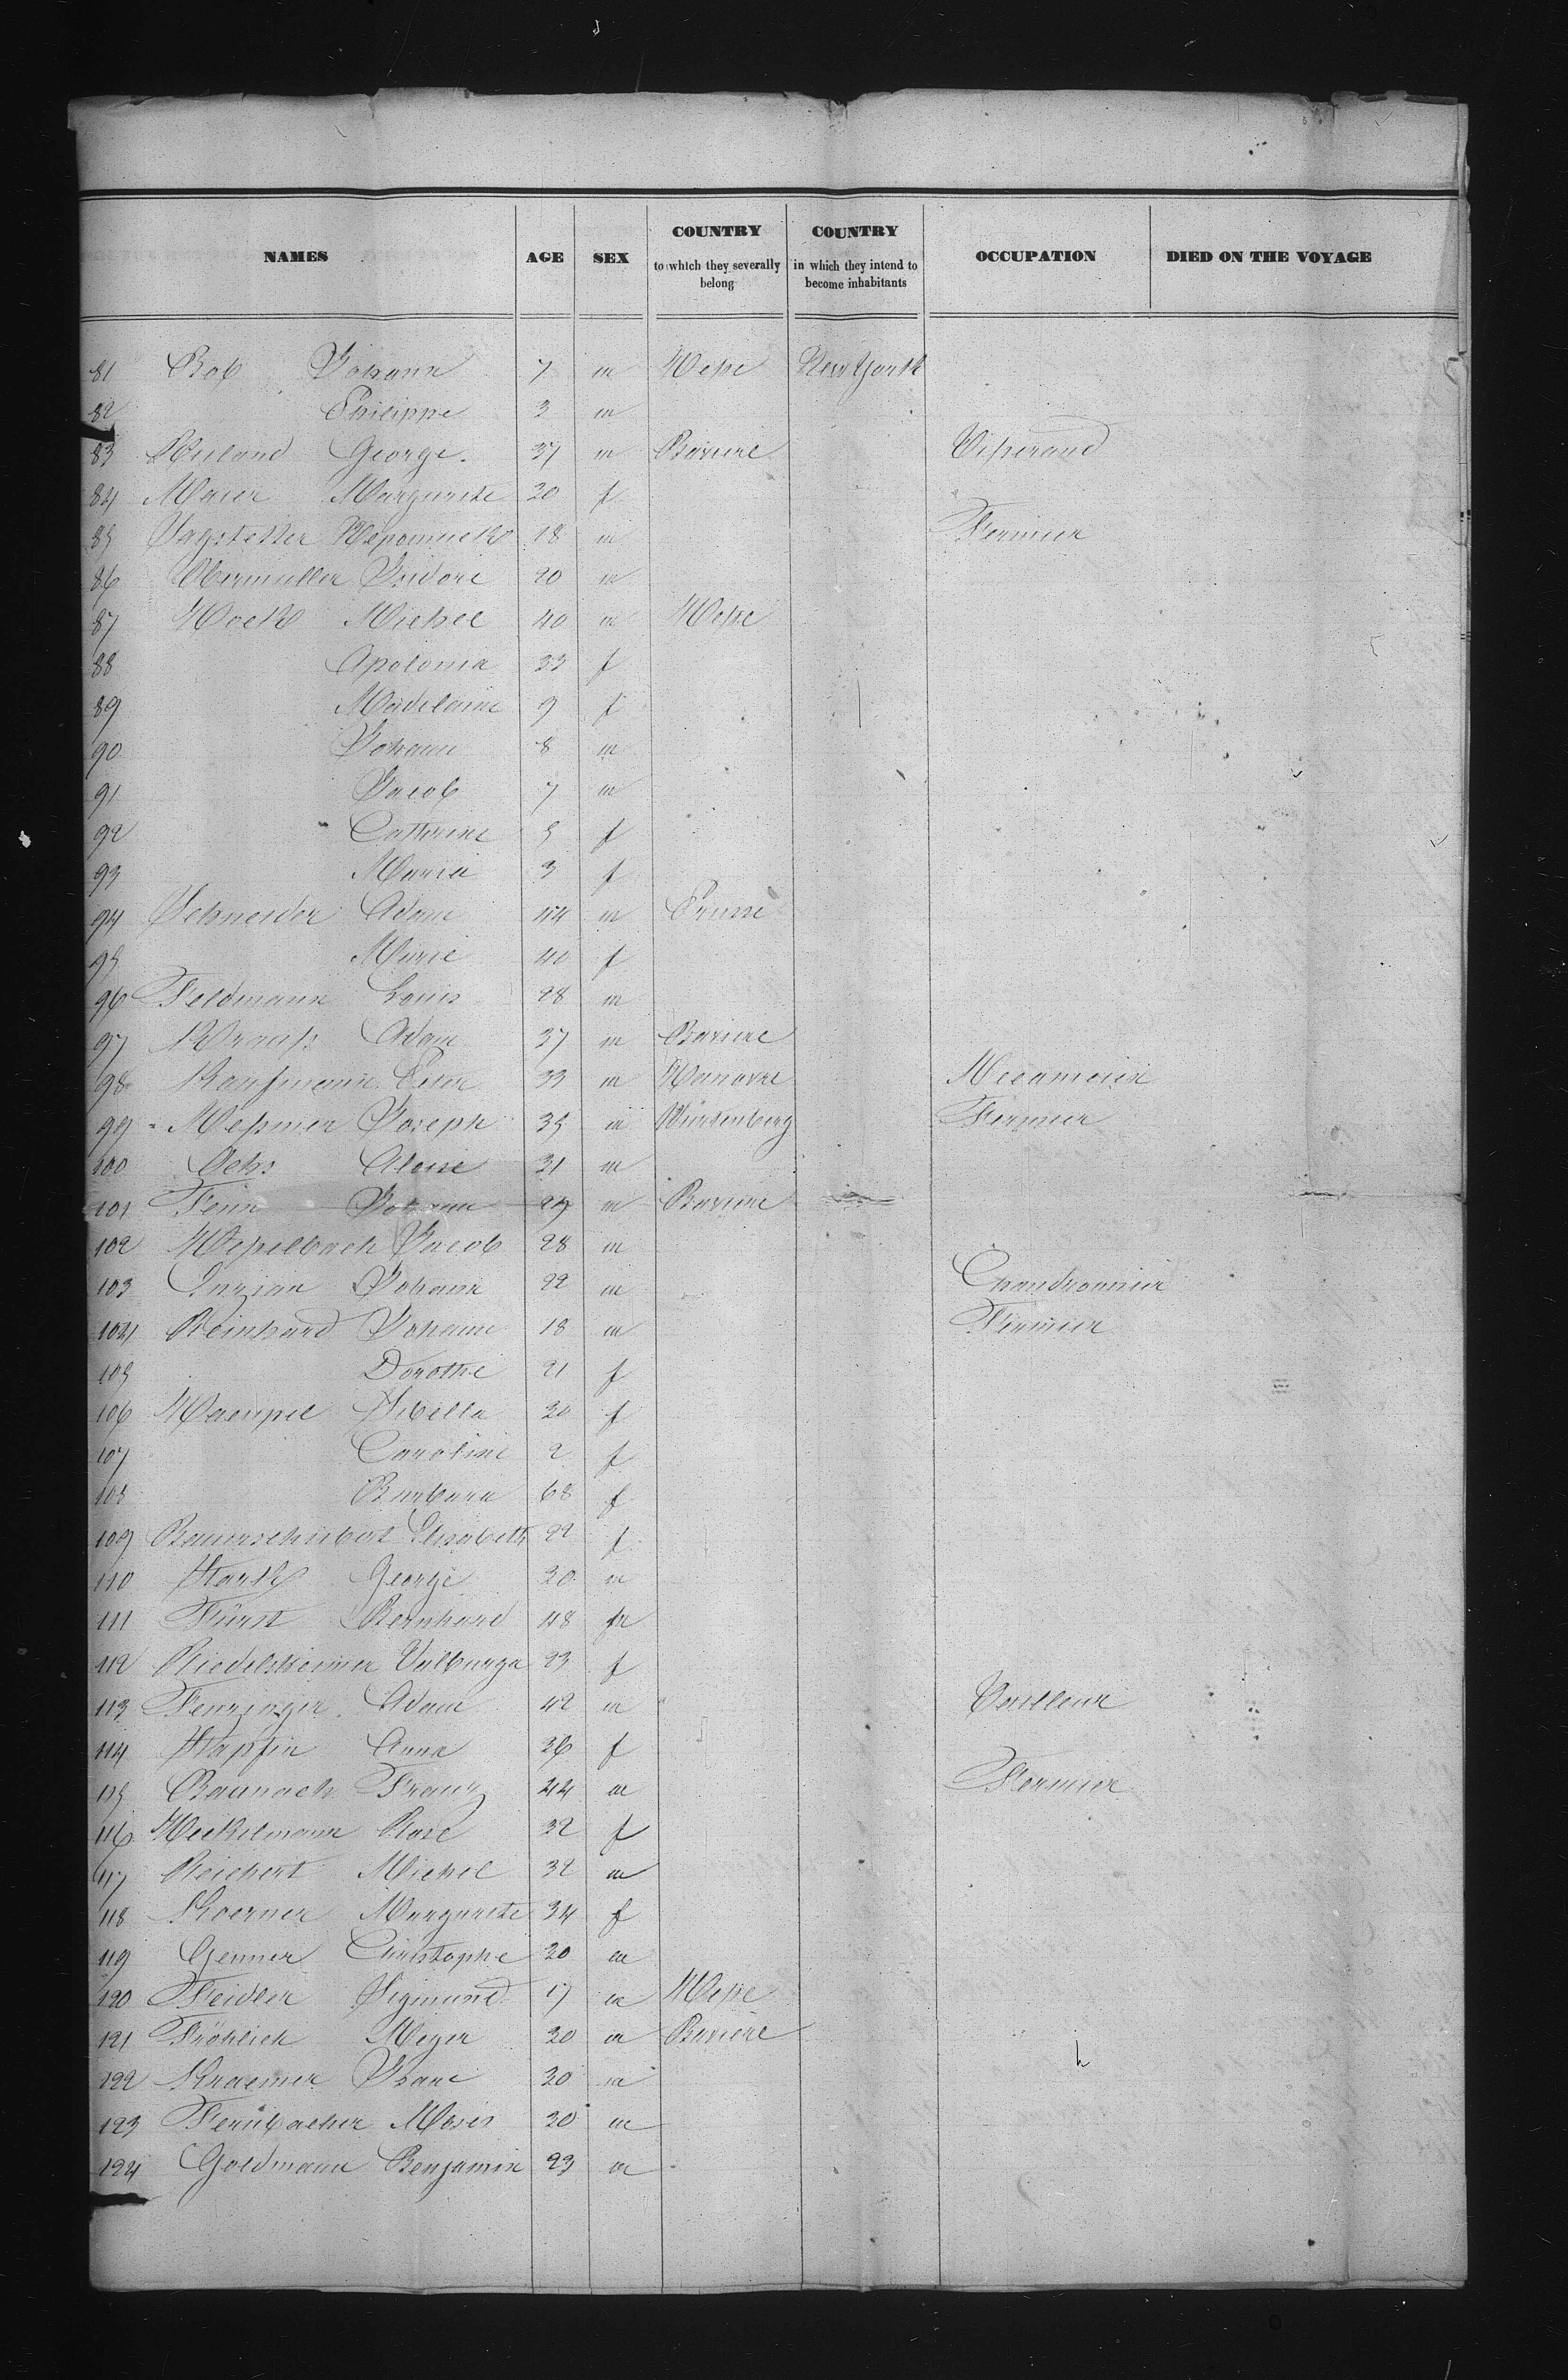 NAMES AGE SEX COUNTRY to which they severally belong COUNTRY in which they intend to become inhabitants OCCUPATION DIED ON THE VOYAGE
81 Bob Johann 7 m Hesse New York
82 Philippe 3 m
83 Ruland George. 37 m Baviere Tisserand
84 Maier Margarete 20 f
85 18 m Fermier
86 Obermuller Isidore 20 m
87 Hock Michel 40 m Hesse
88 Apolonia 33 f
89 Madelaine 9 f
90 Johann 8 m
91 Jacob 7 m
92 Catterine 5 f
93 Maria 3 f
94 Schneider Adam 44 m Prusse
95 Marie 40 f
96 Feldmann Louis 28 m
97 Krauss Adam 37 m Baviere
98 Kaufmann Peter 33 m Hanovre
99 Messmer Joseph 35 m Würtenberg Fermier
100 Ochs Aloise 31 m
101 Johann 29 m Baviere
102 Jacob 28 m
103 Johann 22 m Chaudronnier
104 Reinhard Johann 18 m Fermier
105 Dorothe 21 f
106 Sibella 20 f
107 Caroline 2 f
108 Barbara 68 f
109 Bauerschubert Elisabeth 22 f
110 Stark George 20 m
111 Fürst Bernhard 48 m
112 Riedelsheimer Valburga 23 f
113 Adam 42 m Tailleur
114 Anna 36 f
115 Baunach Franz 44 m Fermier
116 Heckelmann Rose 32 f
117 Reichert Michel 32 m
118 Koerner Margarete 34 f
119 Genner Christophe 20 m
120 Feidler Sigmund 17 m Hesse
121 Fröhlich Meyer 20 m Baviere
122 Kraemer Isaac 20 m
123 Fernbacher Moses 20 m
124 Goldmann Benjamin 23 m